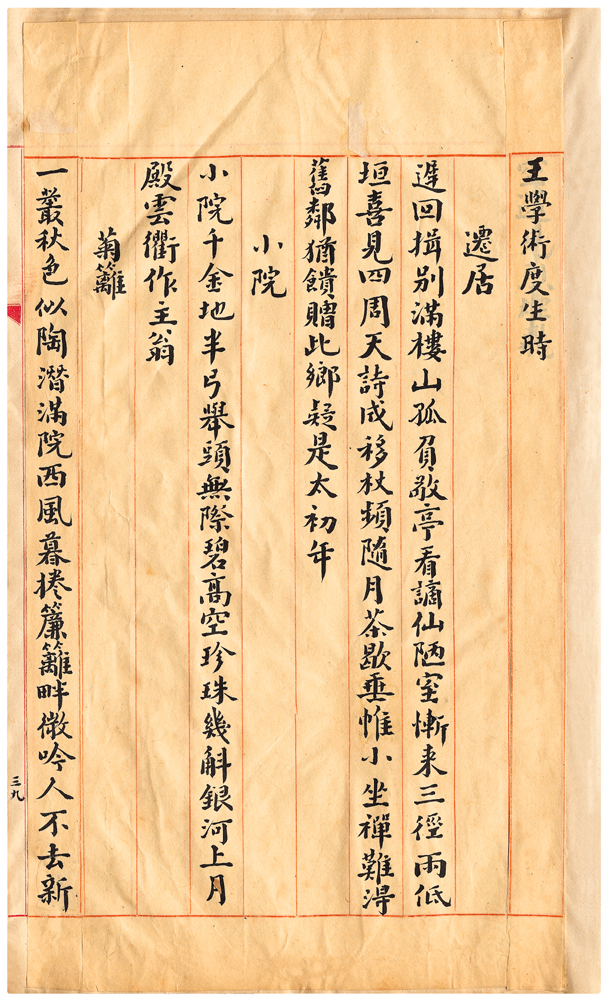 王學術度生時
遷居
遲回揖別滿樓山孤負敬亭看謫仙陋室慚来三徑雨低
垣喜見四周天詩成移杖頻隨月茶歇垂帷小坐禪難得
舊鄰猶饋贈此鄉疑是太初年
小院
小院千金地半弓舉頭無際碧髙空珍珠幾斛銀河上月
殿雲衢作主翁
菊籬
一叢秋色似陶潛滿院西風暮捲簾籬畔微吟人不去新
三九